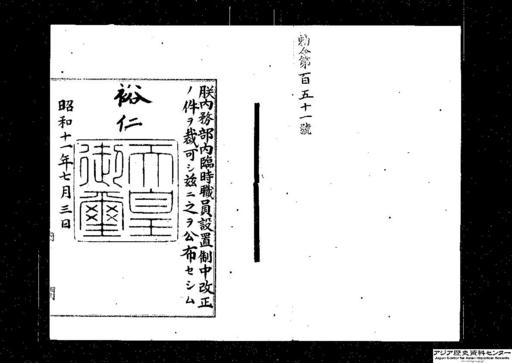 勅令第百五十一號
朕内務部内臨時職員設置制中改正
ノ件ヲ裁可シ茲ニ之ヲ公布セシム
裕仁
天皇御璽
昭和十一年七月三日
アジア歴史資料センター
Japan Center for Asian Historical Records